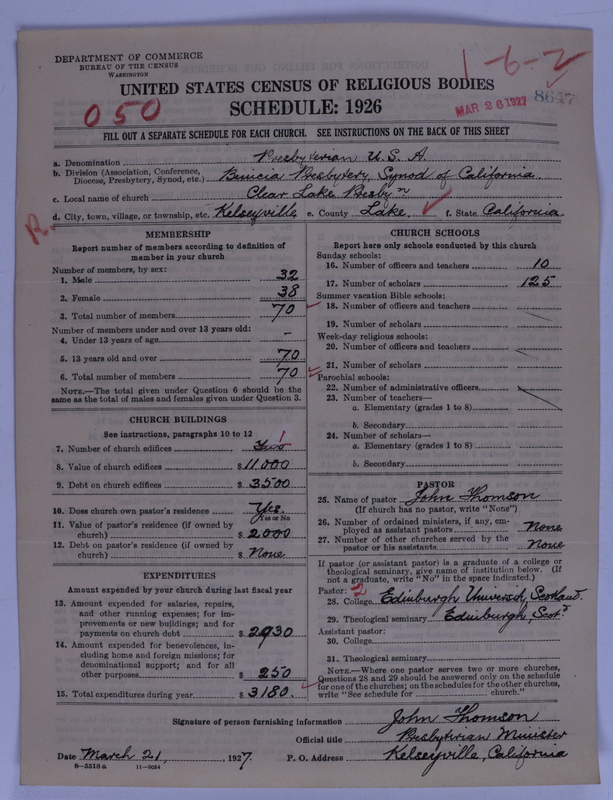 DEPARTMENT OF COMMERCE
BUREAU OF THE CENSUS
WASHINGTON
1-6-2
UNITED STATES CENSUS OF RELIGIOUS BODIES
050
SCHEDULE: 1926
MAR 26 1927
8647
FILL OUT A SEPARATE SCHEDULE FOR EACH CHURCH. SEE INSTRUCTIONS ON THE BACK OF THIS SHEET
a. Denomination Presbyterian U.S.A.
b. Division (Association, Conference, Diocese, Presbytery, Synod, etc.) Benicia Presbytery, Synod of California.
c. Local name of church Clear Lake Presbyn
d. City, town, village, or township, etc. Kelseyville e. County Lake. f. State California.
R.
MEMBERSHIP
Report number of members according to definition of
member in your church
Number of members, by sex:
1. Male 32
2. Female 38
3. Total number of members 70
Number of members under and over 13 years old:
4. Under 13 years of age -
5. 13 years old and over 70
6. Total number of members 70
NOTE.—The total given under Question 6 should be
same as the total of males and females given under Question 3.
CHURCH BUILDINGS
See instructions, paragraphs 10 to 12
7. Number of church edifices Two 1
8. Value of church edifices $ 11000
9. Debt on church edifices $ 3500
10. Does church own pastor's residence Yes.
Yes or No
11. Value of pastor's residence (if owned by
church) $ 2000
12. Debt on pastor's residence (if owned by
church) $ None
EXPENDITURES
Amount expended by your church during last fiscal year
13. Amount expended for salaries, repairs,
and other running expenses; for im-
provements or new buildings; and for
payments on church debt $ 2930
14. Amount expended for benevolences, in-
cluding home and foreign missions; for
denominational support; and for all
other purposes $ 250
15. Total expenditures during year $ 3180.
CHURCH SCHOOLS
Report here only schools conducted by this church
Sunday schools:
16. Number of officers and teachers 10
17. Number of scholars 125
Summer vacation Bible schools:
18. Number of officers and teachers
19. Number of scholars
Week-day religious schools:
20. Number of officers and teachers
21. Number of scholars
Parochial schools:
22. Number of administrative officers
23. Number of teachers—
a. Elementary (grades 1 to 8)
b. Secondary
24. Number of scholars—
a. Elementary (grades 1 to 8)
b. Secondary
PASTOR
25. Name of pastor John Thomson
(If church has no pastor, write "None")
26. Number of ordained ministers, if any, em-
ployed as assistant pastors None
27. Number of other churches served by the
pastor or his assistants None
If pastor (or assistant pastor) is a graduate of a college or
theological seminary, give name of institution below. (If
not a graduate, write "No" in the space indicated.)
Pastor: 2
28. College Edinburgh Universit, Scotland.
29. Theological seminary Edinburgh, Scotd
Assistant pastor:
30. College
31. Theological seminary
NOTE.—Where one pastor serves two or more churches,
Questions 28 and 29 should be answered only on the schedule
for one of the churches; on the schedules for the other churches,
write "See schedule for church."
Signature of person furnishing information John Thomson
Official title Presbyterian Minister
Date March 21, 1927. P. O. Address Kelseyville, California
8—5518a 11—9084